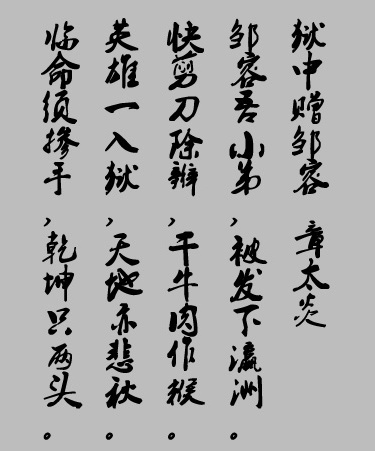 狱中赠邹容 章太炎
邹容吾小弟，被发下瀛洲。
快剪刀除辫，干牛肉作糇。
英雄一入狱，天地亦悲秋。
临命须掺手，乾坤只两头。